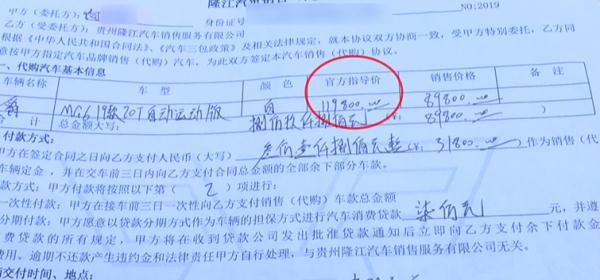 隆江汽车销售
NO:2019
甲方(委托方):
身份证号
乙方(受委托方):贵州隆江汽车销售服务有限公司
根据《中华人民共和国合同法》、《汽车三包政策》及相关法律规定,就本协议双方协商一致,受甲方特别委托,乙方同
意按甲方指定汽车品牌销售(代购)汽车,为此双方签定本汽车销售(代购)协议。
一、代购汽车基本信息
车辆名称 车型 颜色 官方指导价 销售价格 备注
MG6 19款20T自动运动版 白 119800.00 89800.00
合计 总金额 捌 仟捌佰元 89800.00
付款方式:
甲方在签定合同之日向乙方支付人民币(大写) 仟捌佰元整 31800.00 作为销售(代
车辆定金,并在交车前三日内向乙方支付合同总金额的全部余下部分车款。
款方式:甲方付款将按照以下第(2)项进行:
一次性付款:甲方在接车前三日一次性向乙方支付销售(代购)车款总金额
分期付款:甲方愿意以贷款分期付款方式作为车辆的担保方式进行汽车消费贷款 柒佰元 元,并遵
费贷款的所有规定,甲方将在收到贷款公司发出批准贷款通知后立即向乙方支付余下付款金
费用。逾期不还款产生违约金和法律责任甲方自行处理,与贵州隆江汽车销售服务有限公司无关。
交付时间、地点: